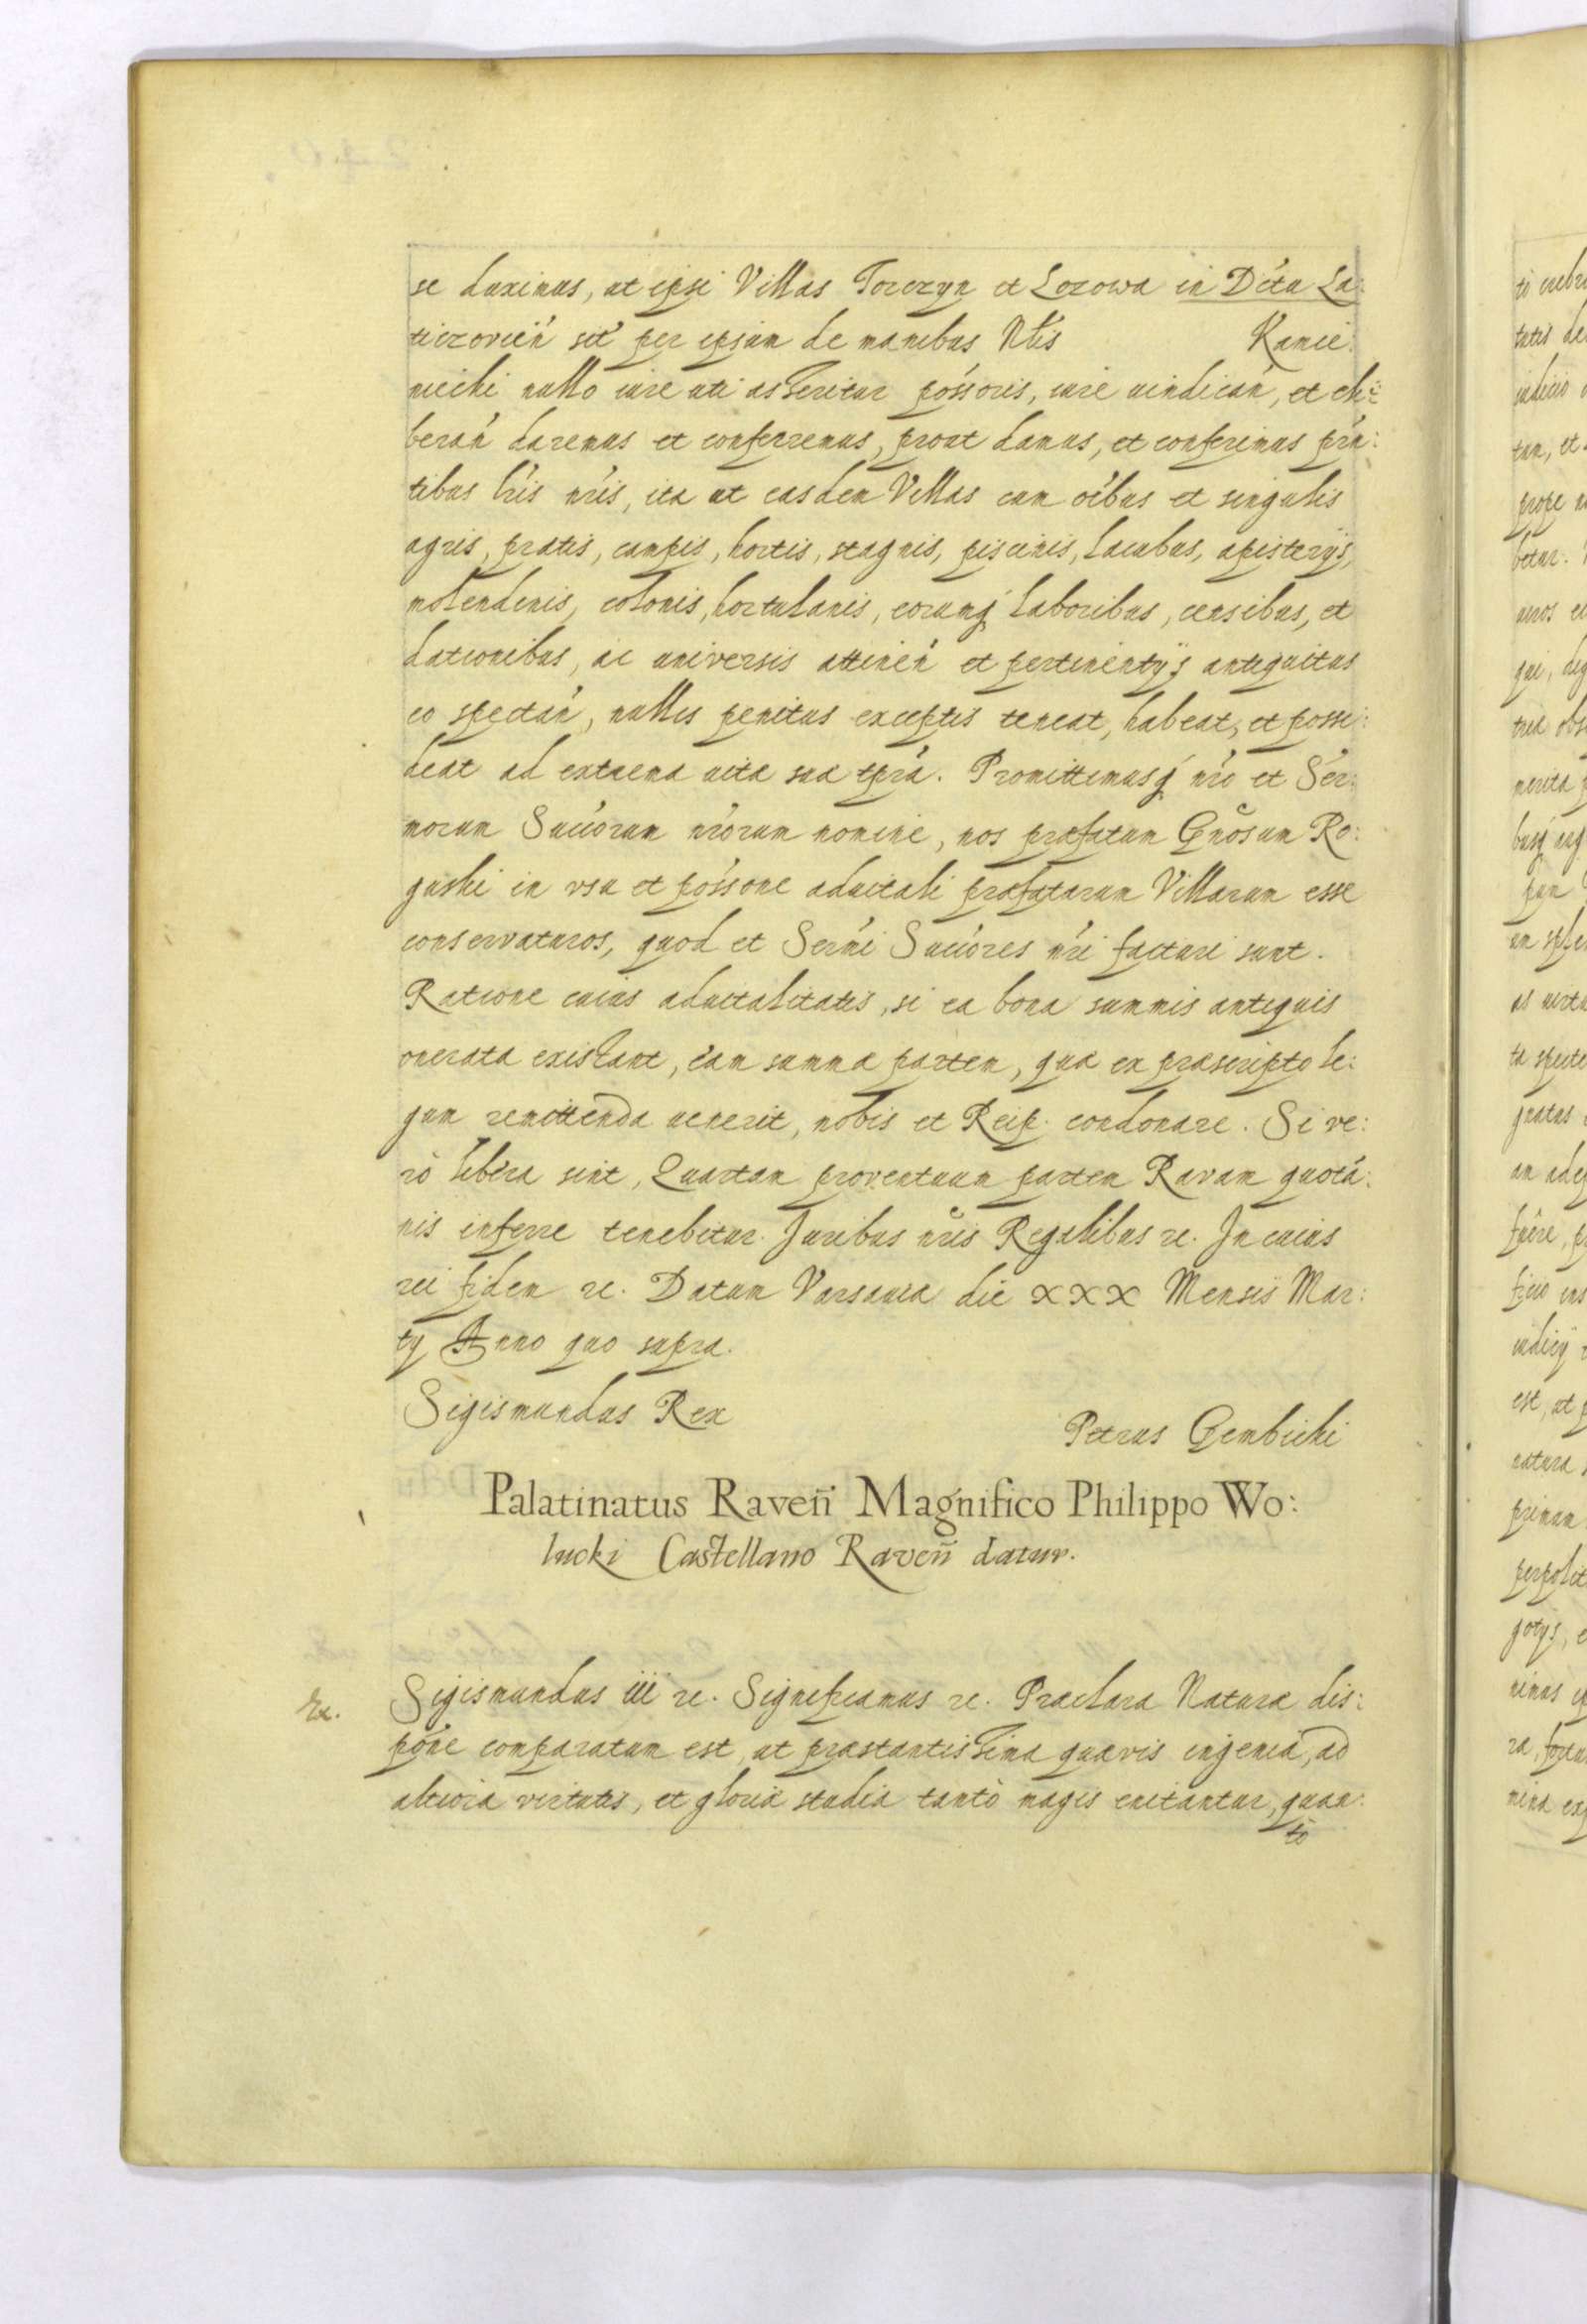 se duximus, ut ipsi Villas Torczyn et Lozowa in Dćtu La:
ticzovień sit́ per ipsum de manibus Nłis Kamie:
niecki nullo iure uti asseritur pósśoris, iure uindicań, et eli:
berań daremus et conferremus, prout damus, et conferimus prń:
tibus lr̃is nr̃is, ita ut easdem Villas cum oĩbus et singulis
agris, pratis, campis, hortis, stagnis, piscinis, lacubus, apisterijs,
molendinis, colonis, hortulanis, eorumq́ laboribus, censibus, et
dationibus, ac universis attineń et pertinentijs antiquitus
eo spectań, nullis penitus exceptis teneat, habeat, et possi:
deat ad extrema uitæ suæ tpra. Promittimusq́ nr̃o et Ser:
morum Succr̃orum nr̃orum nomine, nos præfatum Gnõsum Ro:
guski in vsu et possone aduitali præfatarum Villarum esse
conservaturos, quod et Sermi Succores nr̃i facturi sunt.
Ratione cuius aduitalitatis, si ea bona summis antiquis
onerata existant, eam summæ partem, quæ ex præscripto le:
gum remittenda uenerit, nobis et Reip. condonare. Si ve:
rò libera sint, Quartam proventuum partem Ravam quotá:
nis inferre tenebitur. Juribus nr̃is Regalibus rc. In cuius
rei fidem rc. Datum Varsauiæ die XXX Mensis Mar:
tij Anno quo supra.
Sigismundus Rex
Petrus Gembicki
Palatinatus Raveñ Magnifico Philippo Wo:
lucki Castellano Raveñ datur.
Sigismundus iii rc. Significamus rc. Præclara Naturæ dis:
pone comparatum est, ut præstantissima quævis ingenia, ad
altiora virtutis, et gloriæ studia tantò magis enitantur, quan:
tò